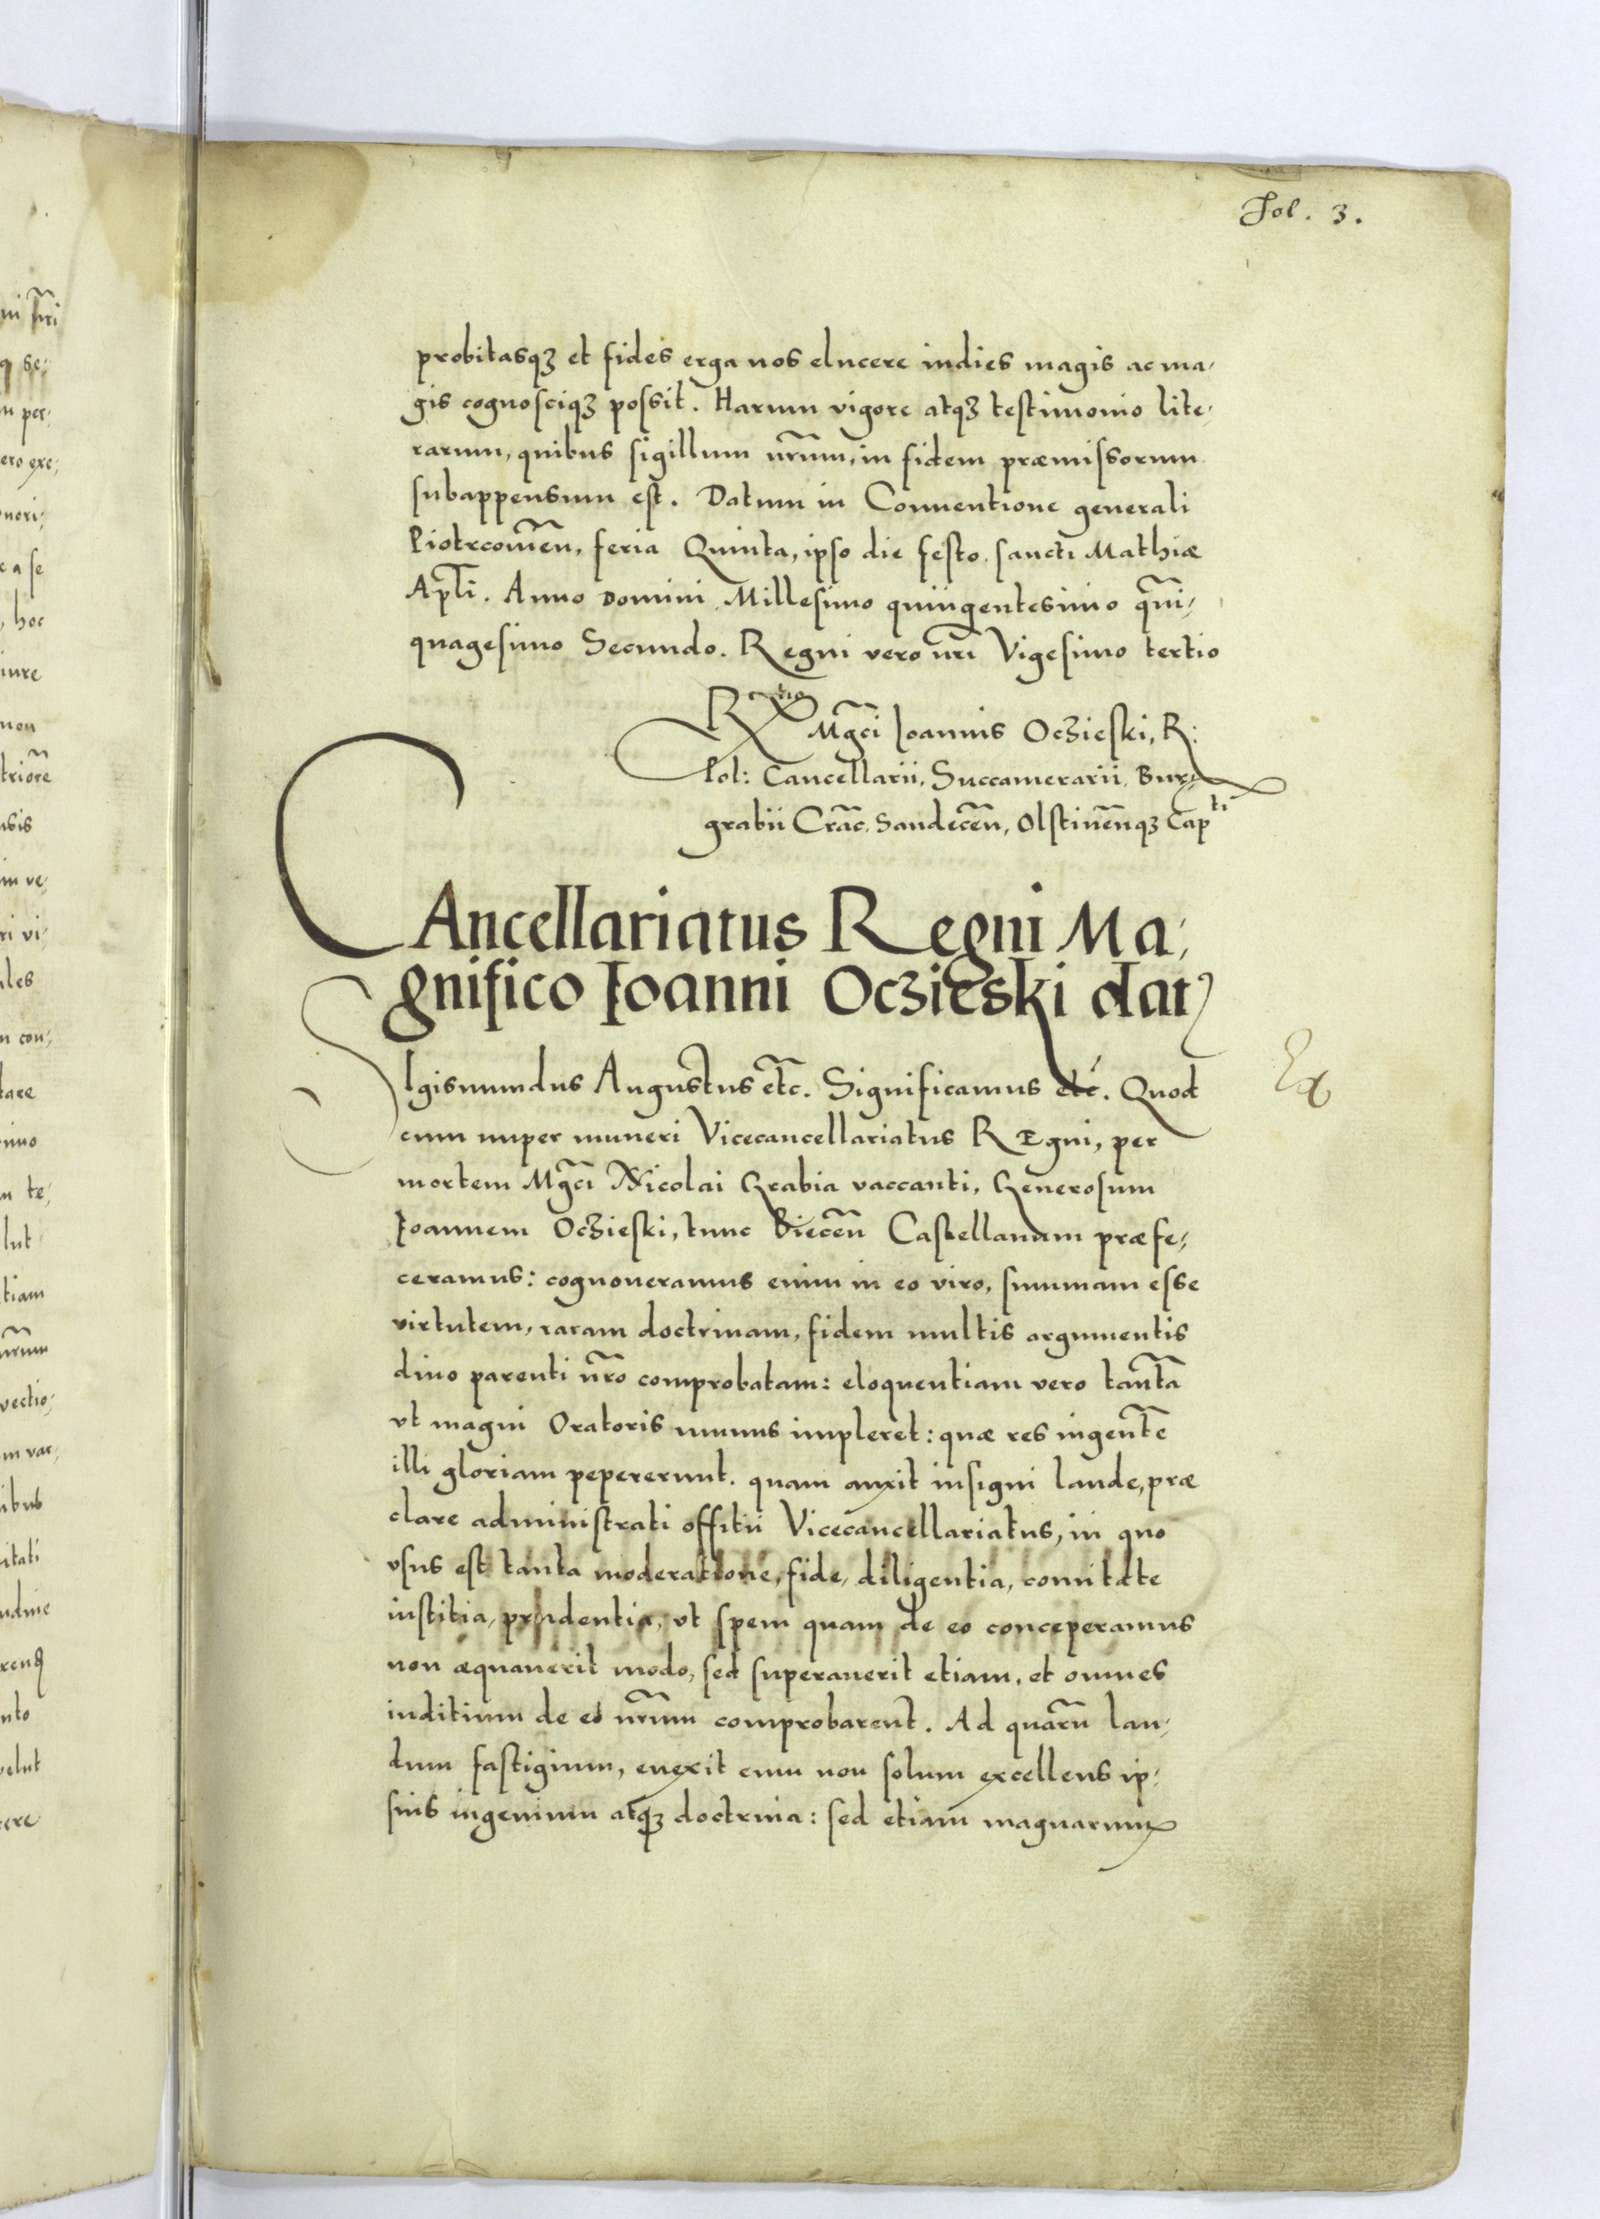 Fol. 3.
probitasqꝫ et fides erga nos elucere indies magis ac ma-
gis cognosciqꝫ possit. Harum vigore atqꝫ testimonio lite-
rarum, quibus sigillum nr̃um, in fidem præmissorum
subappensum est. Datum in Conuentione generali
Piotrcouieñ, feria Quinta, ipso die festo sancti Mathiæ
Apl̃i. Anno Domini Millesimo quingentesimo qui̇̃-
quagesimo Secundo. Regni vero nr̃i Vigesimo tertio
R̃tio Mgc̃i Ioannis Oczieski, R:
Pol: Cancellarii, Succamerarii, Bur-
grabii Crac̃, Sandeceñ, Olstineñqꝫ Capti
CAncellariatus Regni Ma-
gnifico Ioanni Oczieski datꝰ
SIgismundus Augustus etc̃. Significamus etc̃. Quod
cum nuper muneri Vicecancellariatus REgni, per
mortem Mgc̃i Nicolai Grabia vaccanti, Generosum
Ioannem Oczieski, tunc Bieceñ Castellanum præfe-
ceramus: cognoueramus enim in eo viro, summam esse
virtutem, raram doctrinam, fidem multis argumentis
diuo parenti nr̃o comprobatam: eloquentiam vero tantã
vt magni Oratoris munus impleret: quæ res ingentẽ
illi gloriam pepererunt. quam auxit insigni laude, præ
clare administrati offitii Vicecancellariatus, in quo
vsus est tanta moderatione, fide, diligentia, comitate
iustitia, prudentia, vt spem quam de eo conceperamus
non æquauerit modo, sed superauerit etiam, et omnes
iuditium de eo nr̃um comprobarent. Ad quarũ lau-
dum fastigium, euexit eum non solum excellens ip-
sius ingenium atqꝫ doctrina: sed etiam magnarum
Ex